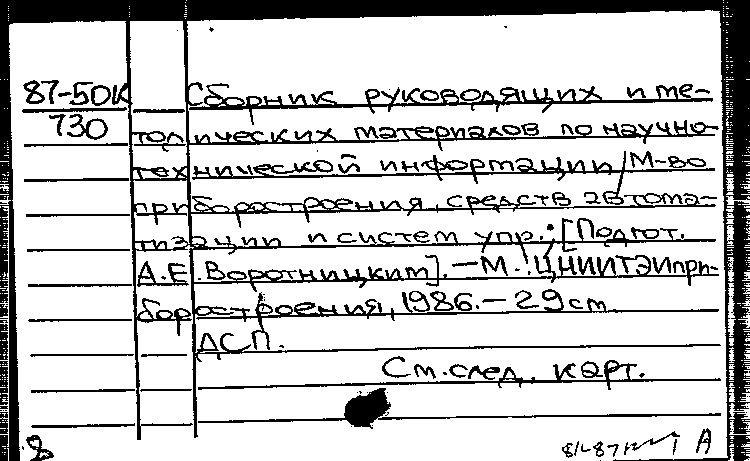 87-50К Сборник руководящих и ме-
730 тодических материалов по научно-
технической информации/М-во
приборостроения, средств автома-
тизации и систем упр.; [Подгот.
А.Е.Воротницким].—М.:ЦНИИТЭИпри-
боростроения, 1986.—29см
ДСП.
См.след. карт.
8 А